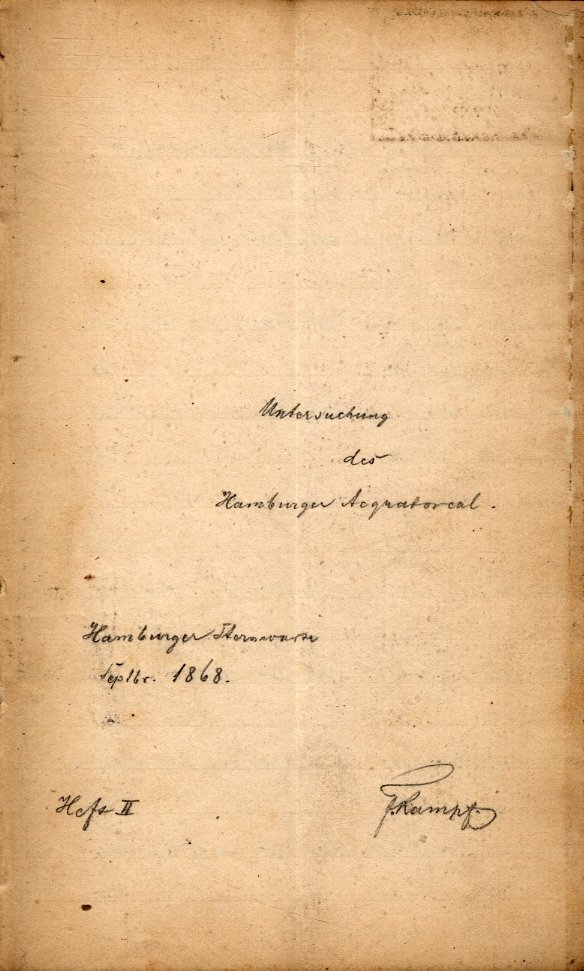 Untersuchung
des
Hamburger Aequatoreal.
Hamburger Sternwarte
Septbr. 1868.
Heft II
F. Kampf.